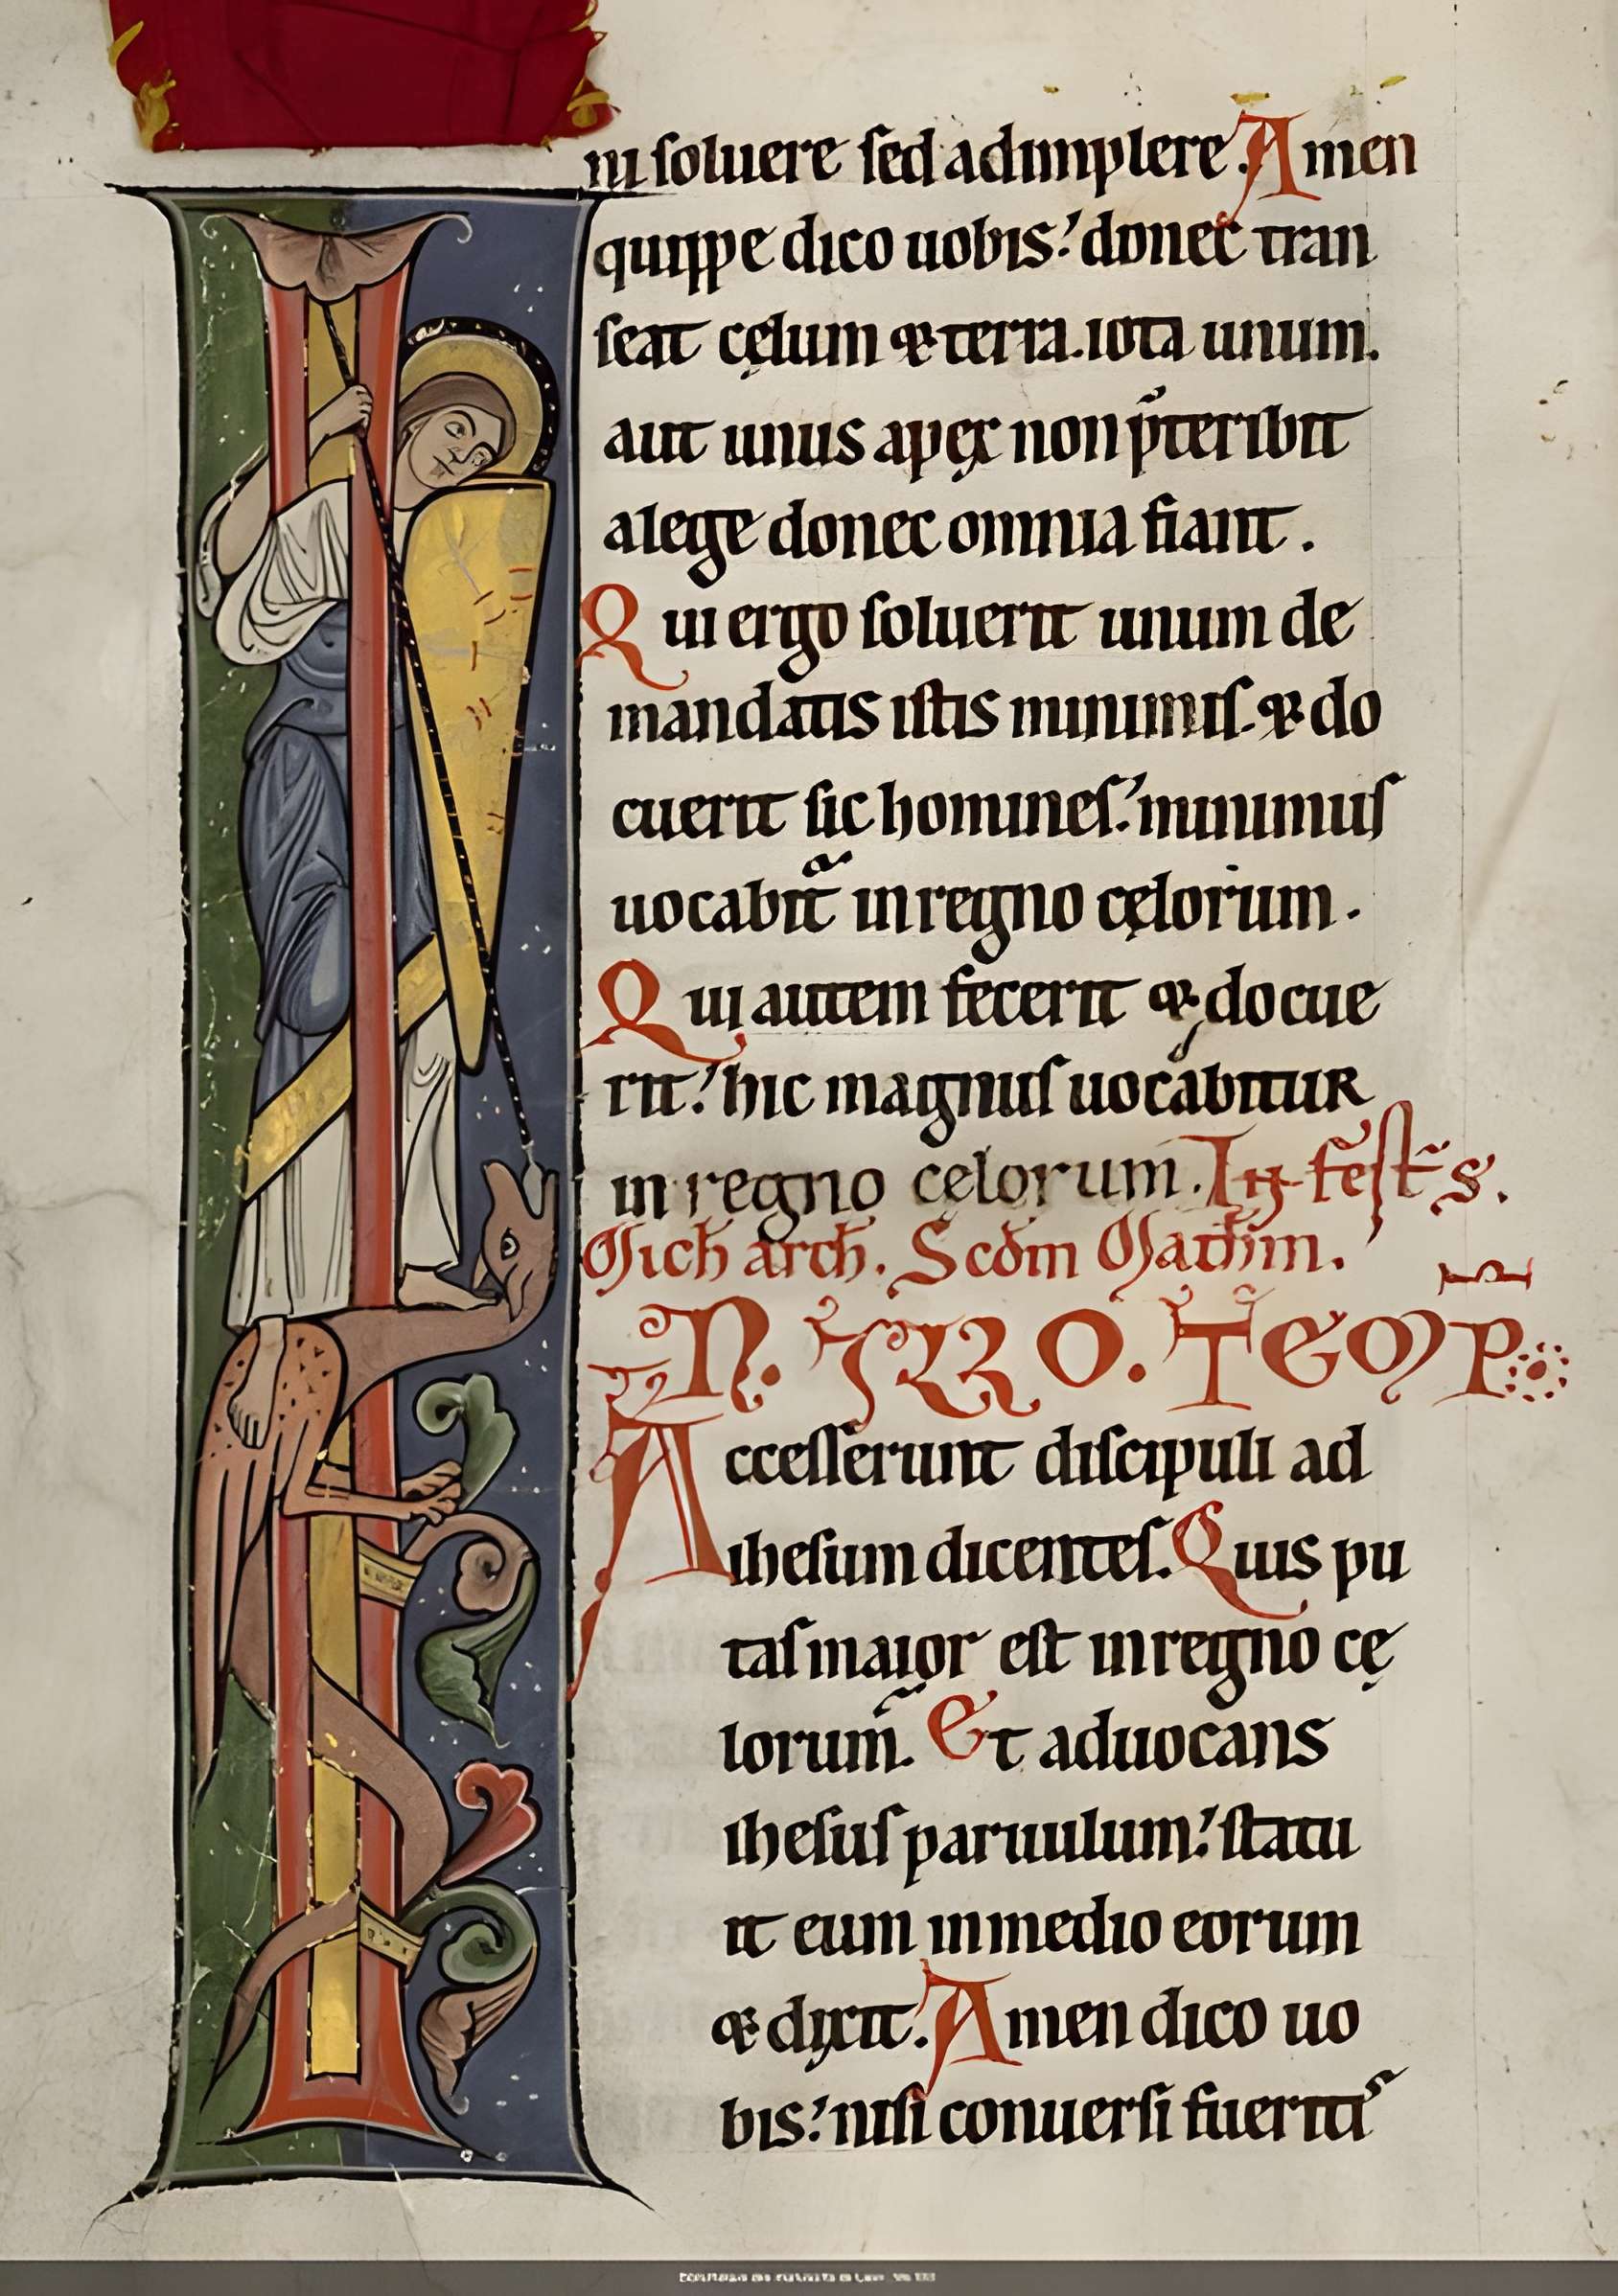 ni soluere sed adimplere. Amen
quippe dico uobis: donec tran
seat cęlum & terra. iota unum.
aut unus apex non p̄teribit
a lege donec omnia fiant.
Qui ergo soluerit unum de
mandatis istis minimis. & do
cuerit sic homines: minimus
uocabit᷑ in regno cęlorum.
Qui autem fecerit & docue
rit: hic magnus uocabitur
in regno cęlorum. In fest̄ s.
Mich̄ arch̄. Scdm̄ Math̄m.
IN. ILLO. TEMP̄
Accesserunt discipuli ad
ihesum dicentes. Quis pu
tas maior est in regno cę
lorum. Et aduocans
ihesus paruulum: statu
it eum in medio eorum
& dixit. Amen dico uo
bis: nisi conuersi fueritis